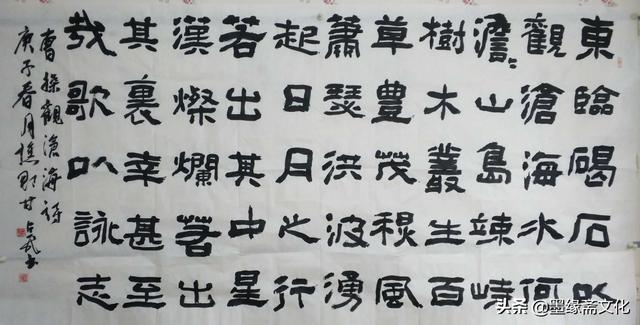 東臨碣石以
觀滄海水何
澹〻山島竦峙
樹木叢生百
草豊茂穐風
蕭瑟洪波湧
起日月之行
若出其中星
漢燦爛若出
其裏幸甚至
哉歌以詠志
曹操觀滄海詩
庚子春月
头条 @墨缘斋文化